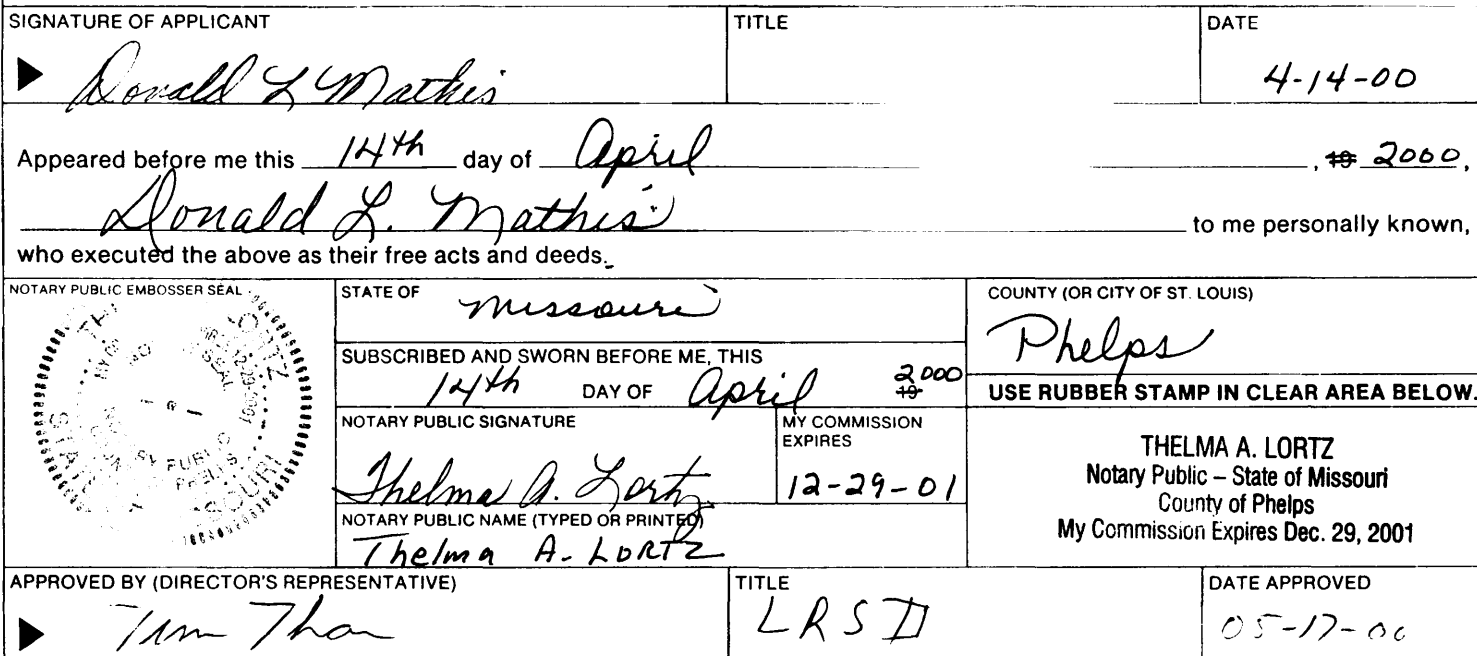 SIGNATURE OF APPLICANT TITLE DATE
Donald L Mathis 4-14-00
Appeared before me this 14th day of April , 19 2000,
Donald L. Mathis to me personally known,
who executed the above as their free acts and deeds.
NOTARY PUBLIC EMBOSSER SEAL
STATE OF Missouri
COUNTY (OR CITY OF ST. LOUIS)
Phelps
SUBSCRIBED AND SWORN BEFORE ME, THIS
14th DAY OF April 19 2000
USE RUBBER STAMP IN CLEAR AREA BELOW.
NOTARY PUBLIC SIGNATURE
Thelma A. Lortz
MY COMMISSION
EXPIRES
12-29-01
NOTARY PUBLIC NAME (TYPED OR PRINTED)
Thelma A. LORTZ
THELMA A. LORTZ
Notary Public – State of Missouri
County of Phelps
My Commission Expires Dec. 29, 2001
APPROVED BY (DIRECTOR'S REPRESENTATIVE) TITLE DATE APPROVED
Tim LRSD 05-17-00